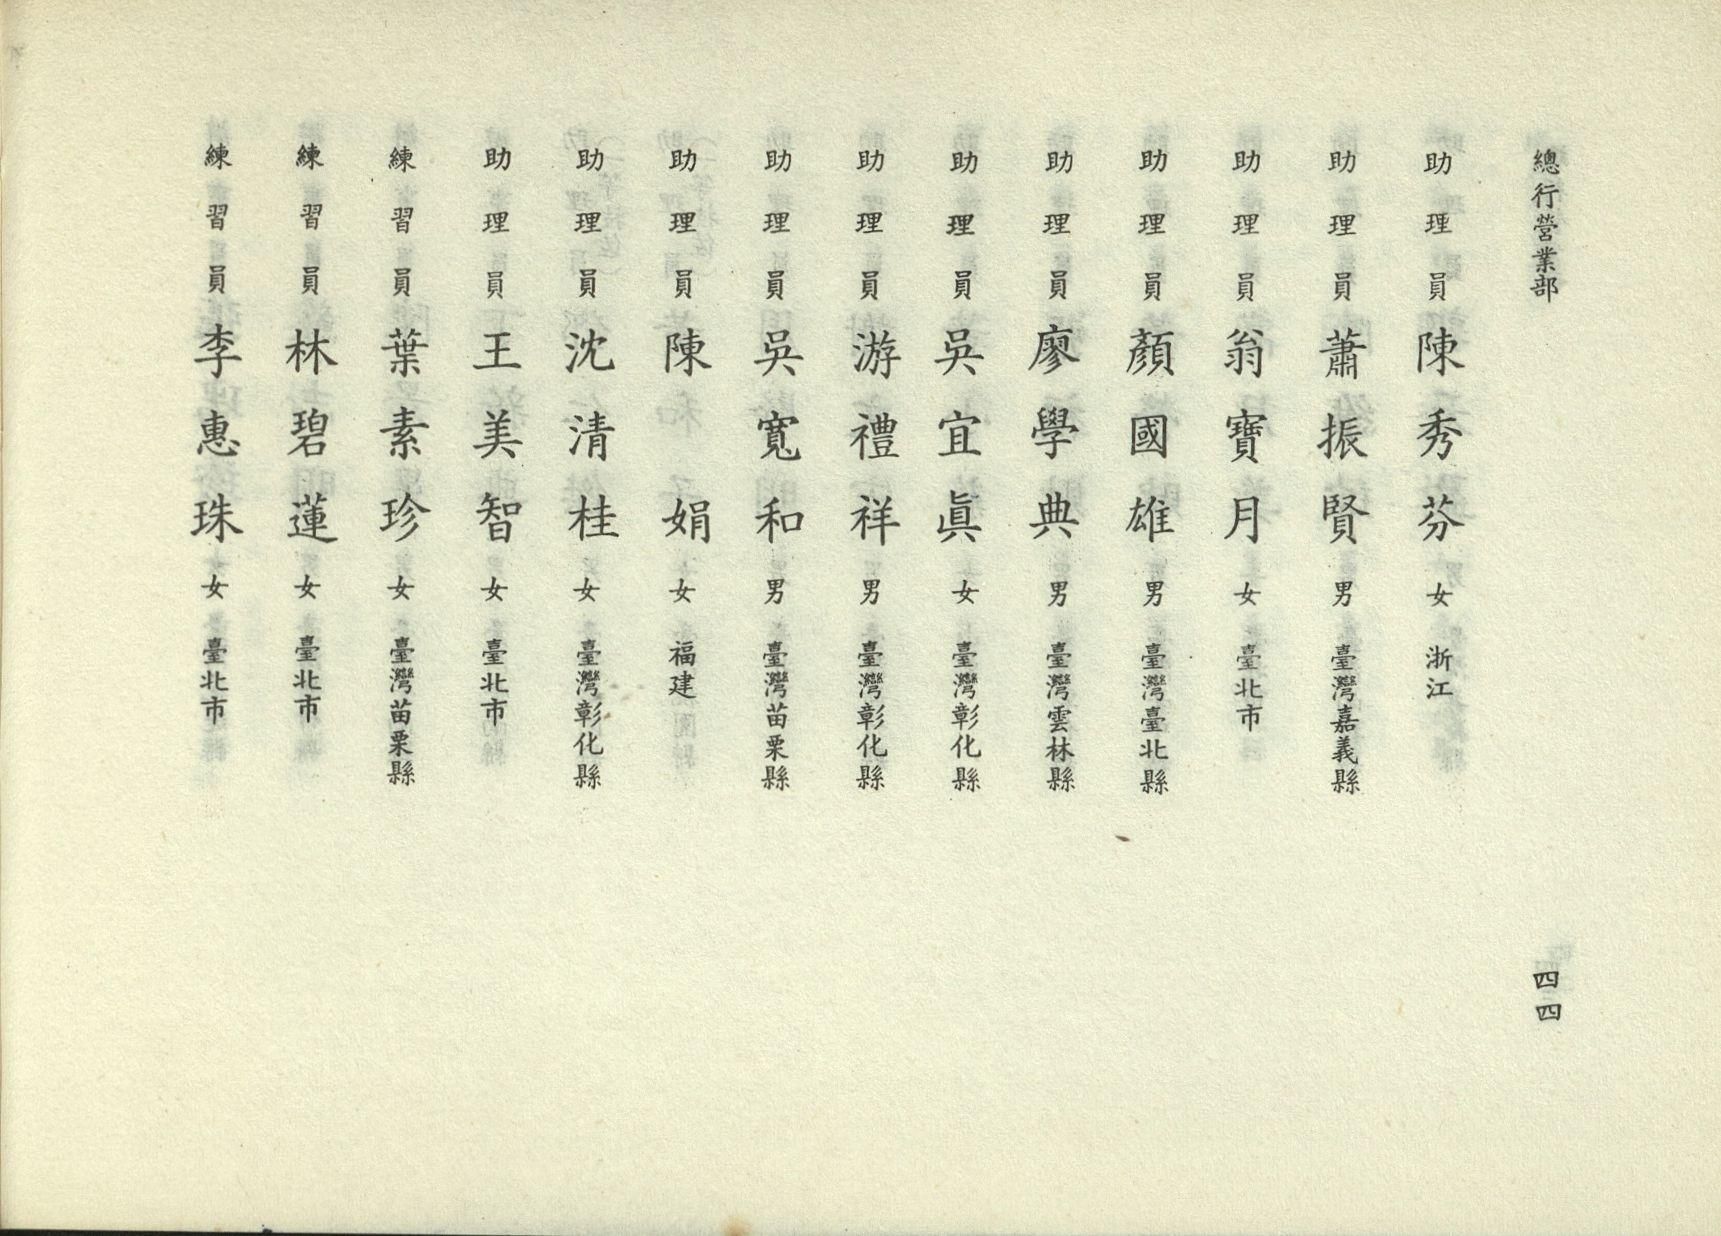 總行營業部
四四
助理員 陳秀芬 女 浙江
助理員 蕭振賢 男 臺灣嘉義縣
助理員 翁寶月 女 臺北市
助理員 顏國雄 男 臺灣臺北縣
助理員 廖學典 男 臺灣雲林縣
助理員 吳宜眞 女 臺灣彰化縣
助理員 游禮祥 男 臺灣彰化縣
助理員 吳寬和 男 臺灣苗栗縣
助理員 陳娟 女 福建
助理員 沈清桂 女 臺灣彰化縣
助理員 王美智 女 臺北市
練習員 葉素珍 女 臺灣苗栗縣
練習員 林碧蓮 女 臺北市
練習員 李惠珠 女 臺北市